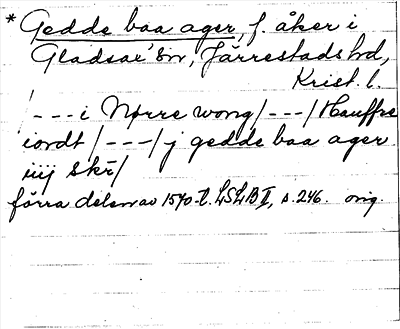 * Gedde baa ager, f. åker i
Gladsax' sn, Järrestads hd,
Krist. l.
/ - - - i Nørre wong / - - - / Hauffre
iordt / - - - / j gedde baa ager
iiij skr̄ /
förra delen av 1540-t. LSLB II, s. 246. orig.